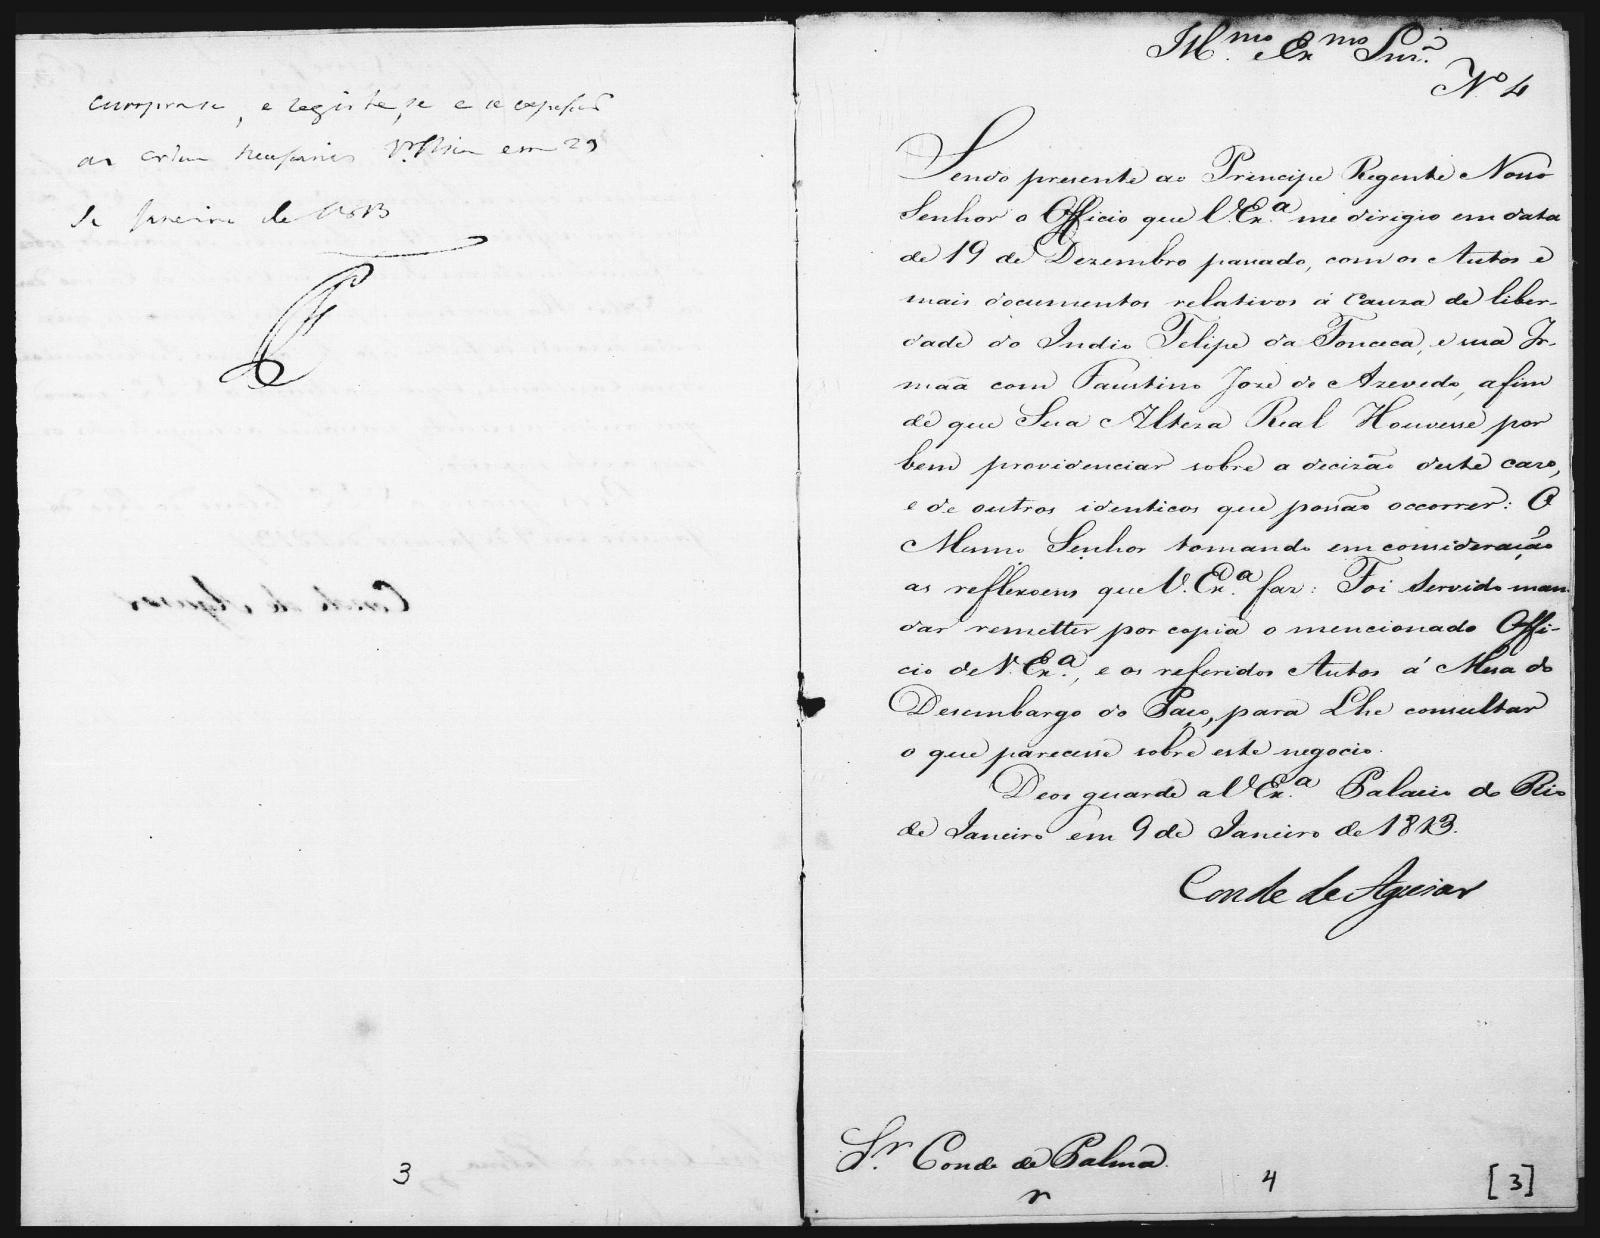 Cumprase, e registe, se e se expessão
as ordens necessarias V.ª Rica em 29
de Janeiro de 1813
3
Ill.mo e Ex.mo Snr.
N.º 4
Sendo presente ao Principe Regente Nosso
Senhor o Officio que V. Ex.ª me dirigio em data
de 19 de Dezembro passado, com os Autos e
mais documentos relativos á Cauza de liber-
dade do Indio Felipe da Fonceca, e sua Ir-
mãa com Faustino Jozé de Azevedo, afim
de que Sua Alteza Real Houvesse por
bem providenciar sobre a decizão deste cazo,
e de outros identicos que possão occorrer: O
Mesmo Senhor tomando em consideração
as reflexoens que V. Ex.ª faz: Foi Servido man
dar remetter por copia o mencionado Offi-
cio de V. Ex.ª, e os referidos Autos á Mesa do
Desembargo do Paço, para Lhe consultar
o que parecesse sobre este negocio.
Deos guarde a V. Ex.ª Palacio do Rio
de Janeiro em 9 de Janeiro de 1813.
Conde de Aguiar
Sr. Conde de Palma
4
[3]